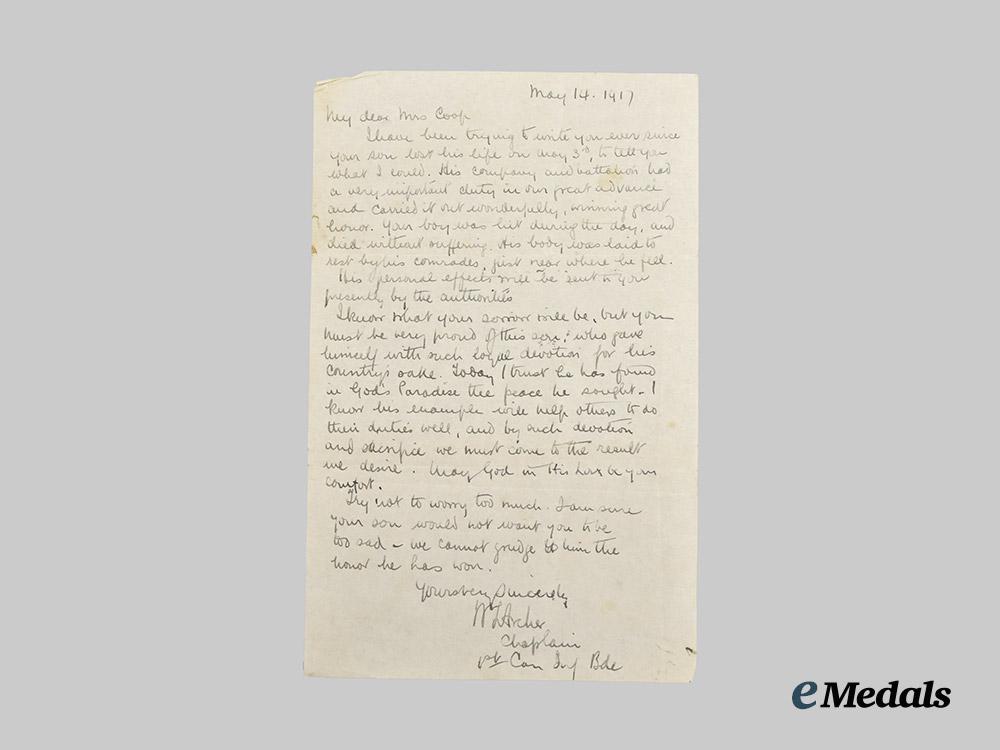 May 14. 1917
My dear Mrs Coop
I have been trying to write you ever since
your son lost his life on May 3rd, to tell you
what I could. His company and battalion had
a very important duty in our great advance
and carried it out wonderfully, winning great
honor. Your boy was hit during the day, and
died without suffering. His body was laid to
rest by his comrades, just near where he fell.
His personal effects will be sent to you
presently by the authorities
I know what your sorrow will be, but you
must be very proud of this son, who gave
himself with such loyal devotion for his
country's sake. Today I trust he has found
in God's Paradise the peace he sought. I
know his example will help others to do
their duties well, and by such devotion
and sacrifice we must come to the result
we desire. May God in His love be your
comfort.
Try not to worry too much. I am sure
your son would not want you to be
too sad – we cannot grudge to him the
honor he has won.
Yours very Sincerely
W L Archer
Chaplain
1st Can Inf Bde
eMedals